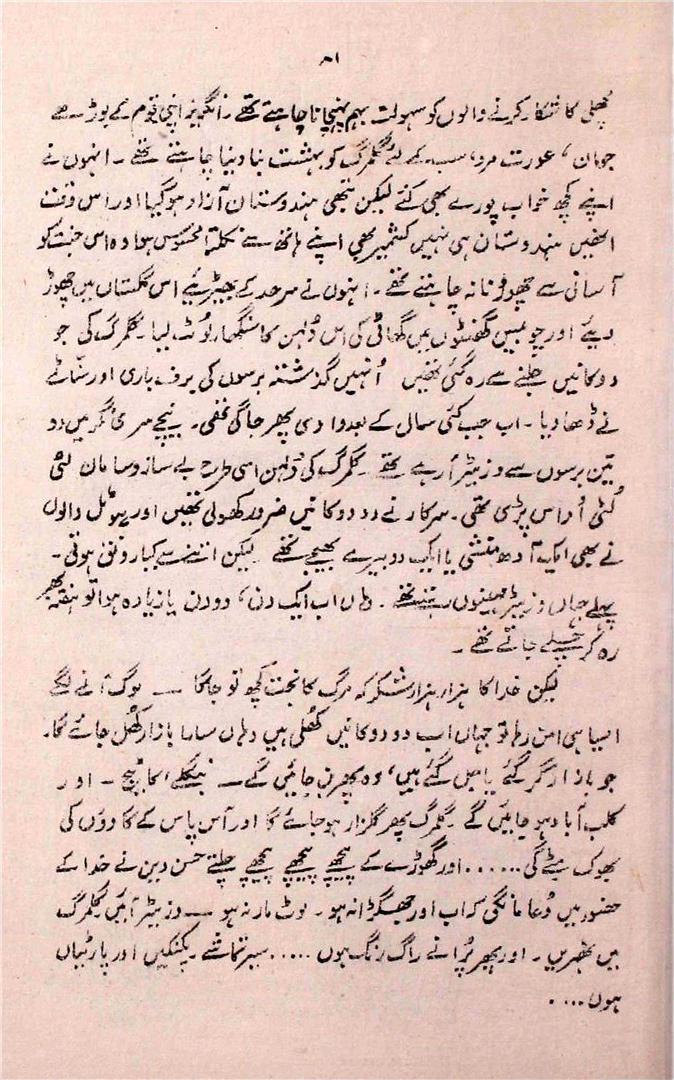 ۸۱
مچھلی کا شکار کرنے والوں کو سہولت بہم پہنچانا چاہتے تھے۔ انگریز اپنی قوم کے بوڑھے
جوان، عورت مرد، سب کے لئے گلمرگ کو بہشت بنا دینا چاہتے تھے۔ انہوں نے
اپنے کچھ خواب پورے بھی کئے لیکن تبھی ہندوستان آزاد ہو گیا اور اس وقت
انھیں ہندوستان ہی نہیں کشمیر بھی اپنے ہاتھ سے نکلتا محسوس ہوا وہ اس جنت کو
آسانی سے چھوڑنا نہ چاہتے تھے۔ انہوں نے سرحد کے بھیڑیے اس گلستاں میں چھوڑ
دیئے اور چوبیس گھنٹوں میں گھاٹی کی اس دُلہن کا سنگھار لُوٹ لیا۔ گلمرگ کی جو
دوکانیں جلنے سے رہ گئی تھیں اُنہیں گذشتہ برسوں کی برف باری اور سنّاٹے
نے ڈھا دیا۔ اب جب کئی سال کے بعد وادی پھر جاگی تھی۔ نیچے سری نگر میں دو
تین برسوں سے وزیٹر آ رہے تھے۔ گلمرگ کی دُلہن اسی طرح بے ساز و سامان لٹی
کُٹی اُداس پڑی تھی۔ سرکار نے دو دوکانیں ضرور کھولی تھیں اور ہوٹل والوں
نے بھی ایک آدھ منشی یا ایک دو بیرے بھیجے تھے۔ لیکن اتنے سے کیا رونق ہوتی۔
پہلے جہاں وزیٹر مہینوں رہتے تھے۔ وہاں اب ایک دن، دو دن یا زیادہ ہوا تو ہفتہ بھر
رہ کر چلے جاتے تھے۔
لیکن خدا کا ہزار ہزار شکر کہ مرگ کا بخت کچھ تو جاگا — لوگ آنے لگے
ایسا ہی امن رہا تو جہاں اب دو دوکانیں کھُلی ہیں وہاں سارا بازار کھُل جائے گا۔
جو بازار گر گئے یا جل گئے ہیں، وہ پھر بن جائیں گے — بنگلے، کاٹیج۔ اور
کلب آباد ہو جائیں گے۔ گلمرگ پھر گلزار ہو جائے گا اور آس پاس کے گاؤوں کی
بھوک مٹے گی...... اور گھوڑے کے پیچھے پیچھے چلتے حسن دین نے خدا کے
حضور میں دُعا مانگی کہ اب اور جھگڑا نہ ہو۔ لوٹ مار نہ ہو — وزیٹر آئیں گلمرگ
میں ٹھہریں۔ اور پھر پُرانے راگ رنگ ہوں..... سیر تماشے۔ پکنکیں اور پارٹیاں
ہوں....